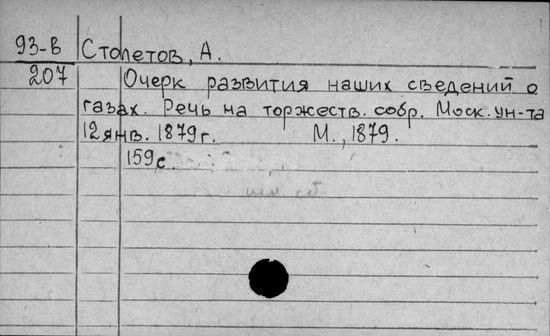 93-в Столетов, А.
207 Очерк развития наших сведений о
газах. Речь на торжеств. собр. Моск. ун-та
12 янв. 1879 г. М., 1879.
159 с.